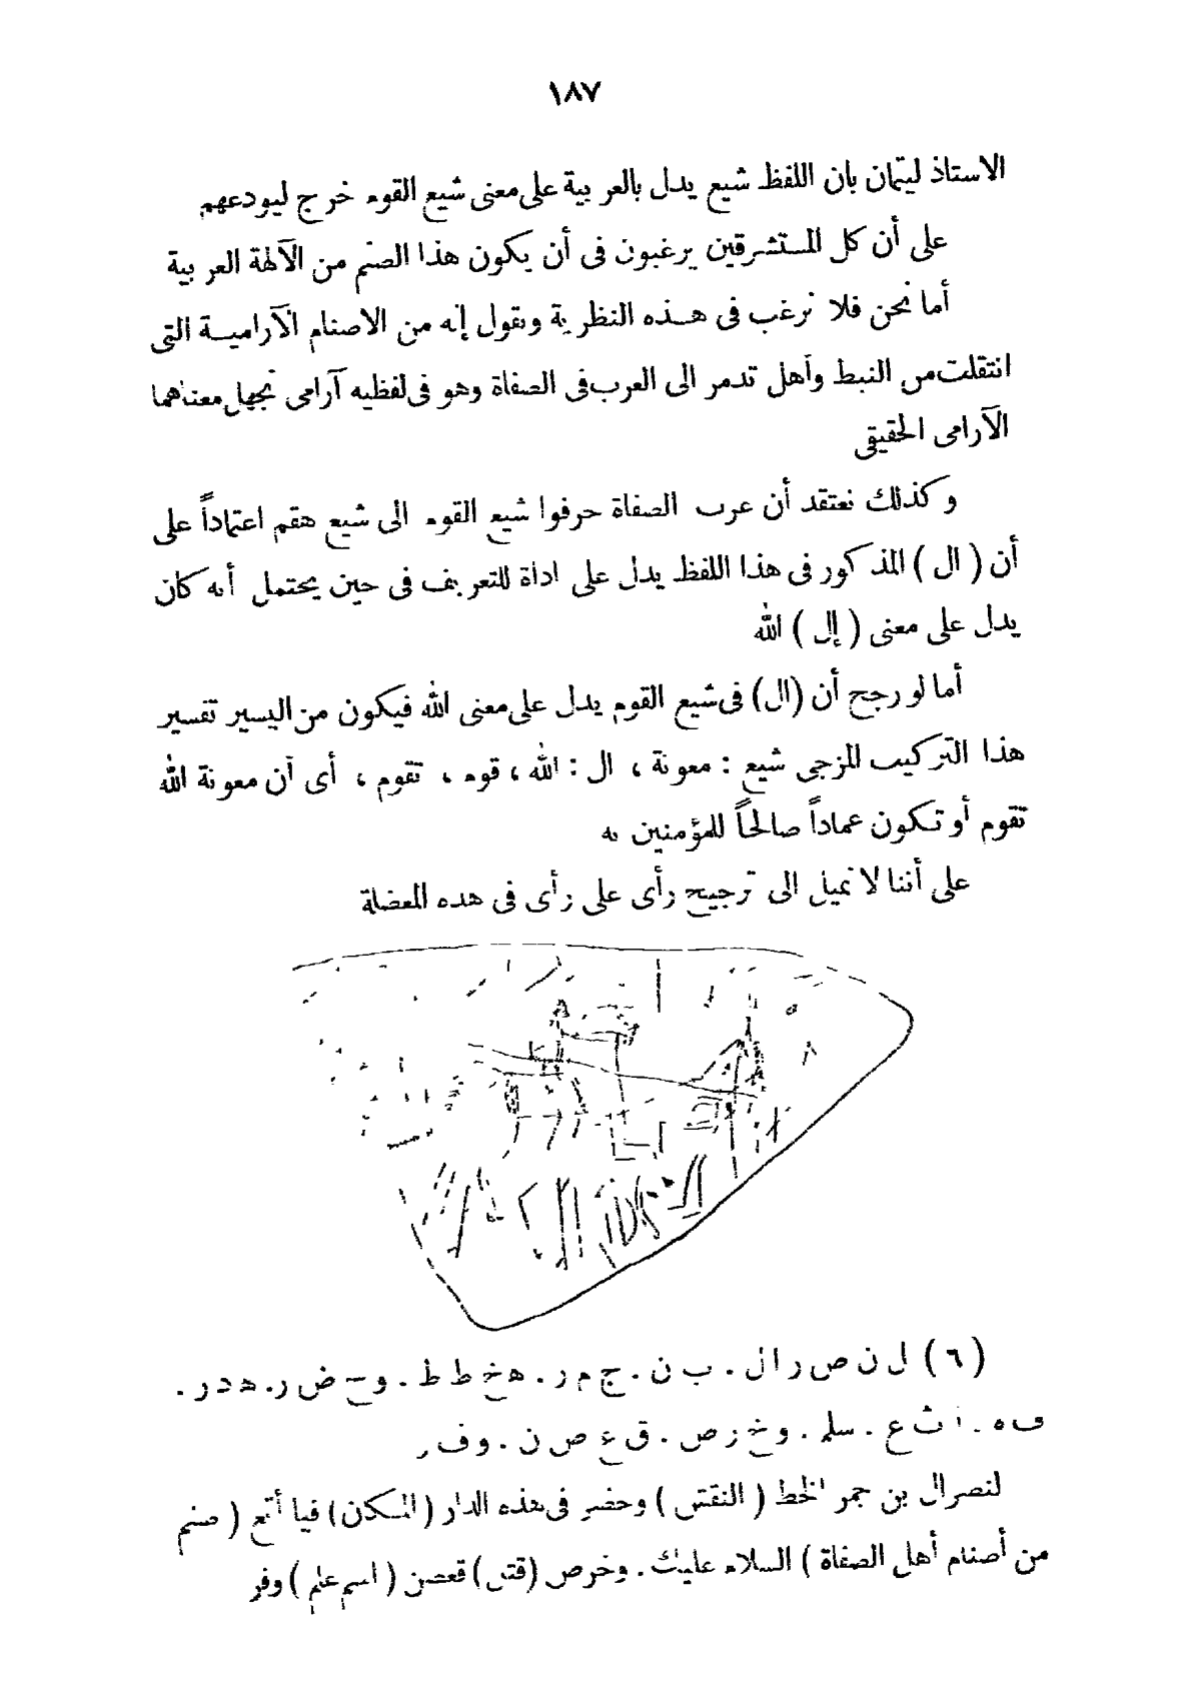 ١٨٧
الاستاذ ليتمان بان اللفظ شيع يدل بالعربية على معنى شيع القوم خرج ليودعهم
على أن كل المستشرقين يرغبون فى أن يكون هذا الصنم من الآلهة العربية
أما نحن فلا نرغب فى هذه النظرية ونقول إنه من الاصنام الآرامية التى
انتقلت من النبط وأهل تدمر الى العرب فى الصفاة وهو فى لفظيه آرامى نجهل معناهما
الآرامى الحقيقى
وكذلك نعتقد أن عرب الصفاة حرفوا شيع القوم الى شيع هقم اعتماداً على
أن ( ال ) المذكور فى هذا اللفظ يدل على اداة للتعريف فى حين يحتمل أنه كان
يدل على معنى ( إل ) الله
أما لو رجح أن (ال) فى شيع القوم يدل على معنى الله فيكون من اليسير تفسير
هذا التركيب المزجى شيع : معونة ، ال : الله ، قوم ، تقوم ، أى أن معونة الله
تقوم أو تكون عماداً صالحاً للمؤمنين به
على أننا لا نميل الى ترجيح رأى على رأى فى هذه المعضلة
( ٦ ) ل ن ص ر ا ل . ب ن . ج م ر . ه خ ط ط . و ح ض ر . ه د ر .
ف ه . أ ث ع . سلم . و خ ر ص . ق ع ص ن . و ف ر
لنصرال بن جمر الخط ( النقش ) وحضر فى هذه الدار ( المكان ) فيا أثع ( صنم
من أصنام أهل الصفاة ) السلام عليك . وخرص (قتل) قعصن ( اسم علم ) وفر